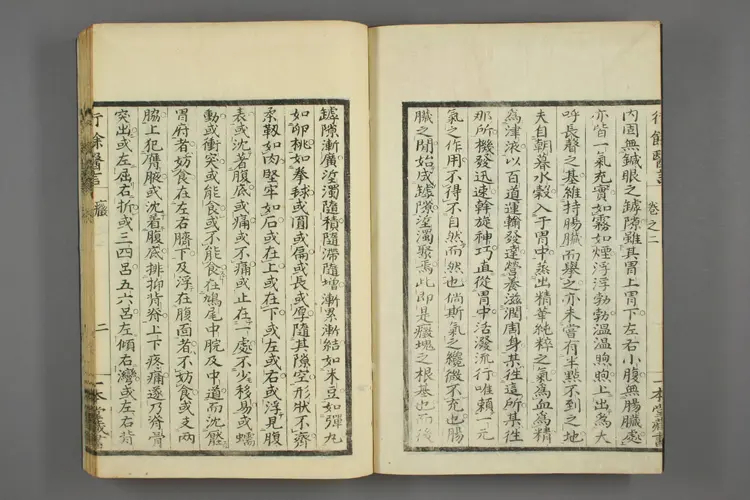 行餘醫言 卷之二 一本堂藏書
內固無鍼眼之罅隙雖其胃上胃下左右小腹無腸臟處
亦皆一氣充實如霧如煙浮浮勃勃溫溫煦煦上出爲大
呼長聲之基維持腸臟而舉之亦未嘗有半點不到之地
夫自朝暮水穀入于胃中蒸出精華純粹之氣爲血爲精
爲津液以百道運輸發達營養滋潤周身某徃這所某徃
那所機發迅速斡旋神巧直從胃中活潑流行唯賴一元
氣之作用不得不自然而然也倘斯氣之纔微不充也腸
臟之間始成罅隙瀅濁聚焉此即是癥塊之根基也而後
罅隙漸廣瀅濁隨積隨滯隨增漸累漸結如米豆如彈丸
如卵桃如拳毬或圓或扁或長或厚隨其隙空形狀不齊
柔韌如肉堅牢如石或在上或在下或左或右或浮見腹
表或沈著腹底或痛或不痛或止在一處不少移易或蠕
動或衝突或能食或不能食在鳩尾中脘及中道而沈壓
胃府者妨食在左右臍下及浮在腹面者不妨食或支兩
脇上犯膺腋或沈著腹底排抑脊脊上下疼痛遂乃脊骨
突出或左屈右折或三四呂五六呂左傾右灣或左右背
行餘醫言 癥 二 一本堂藏書